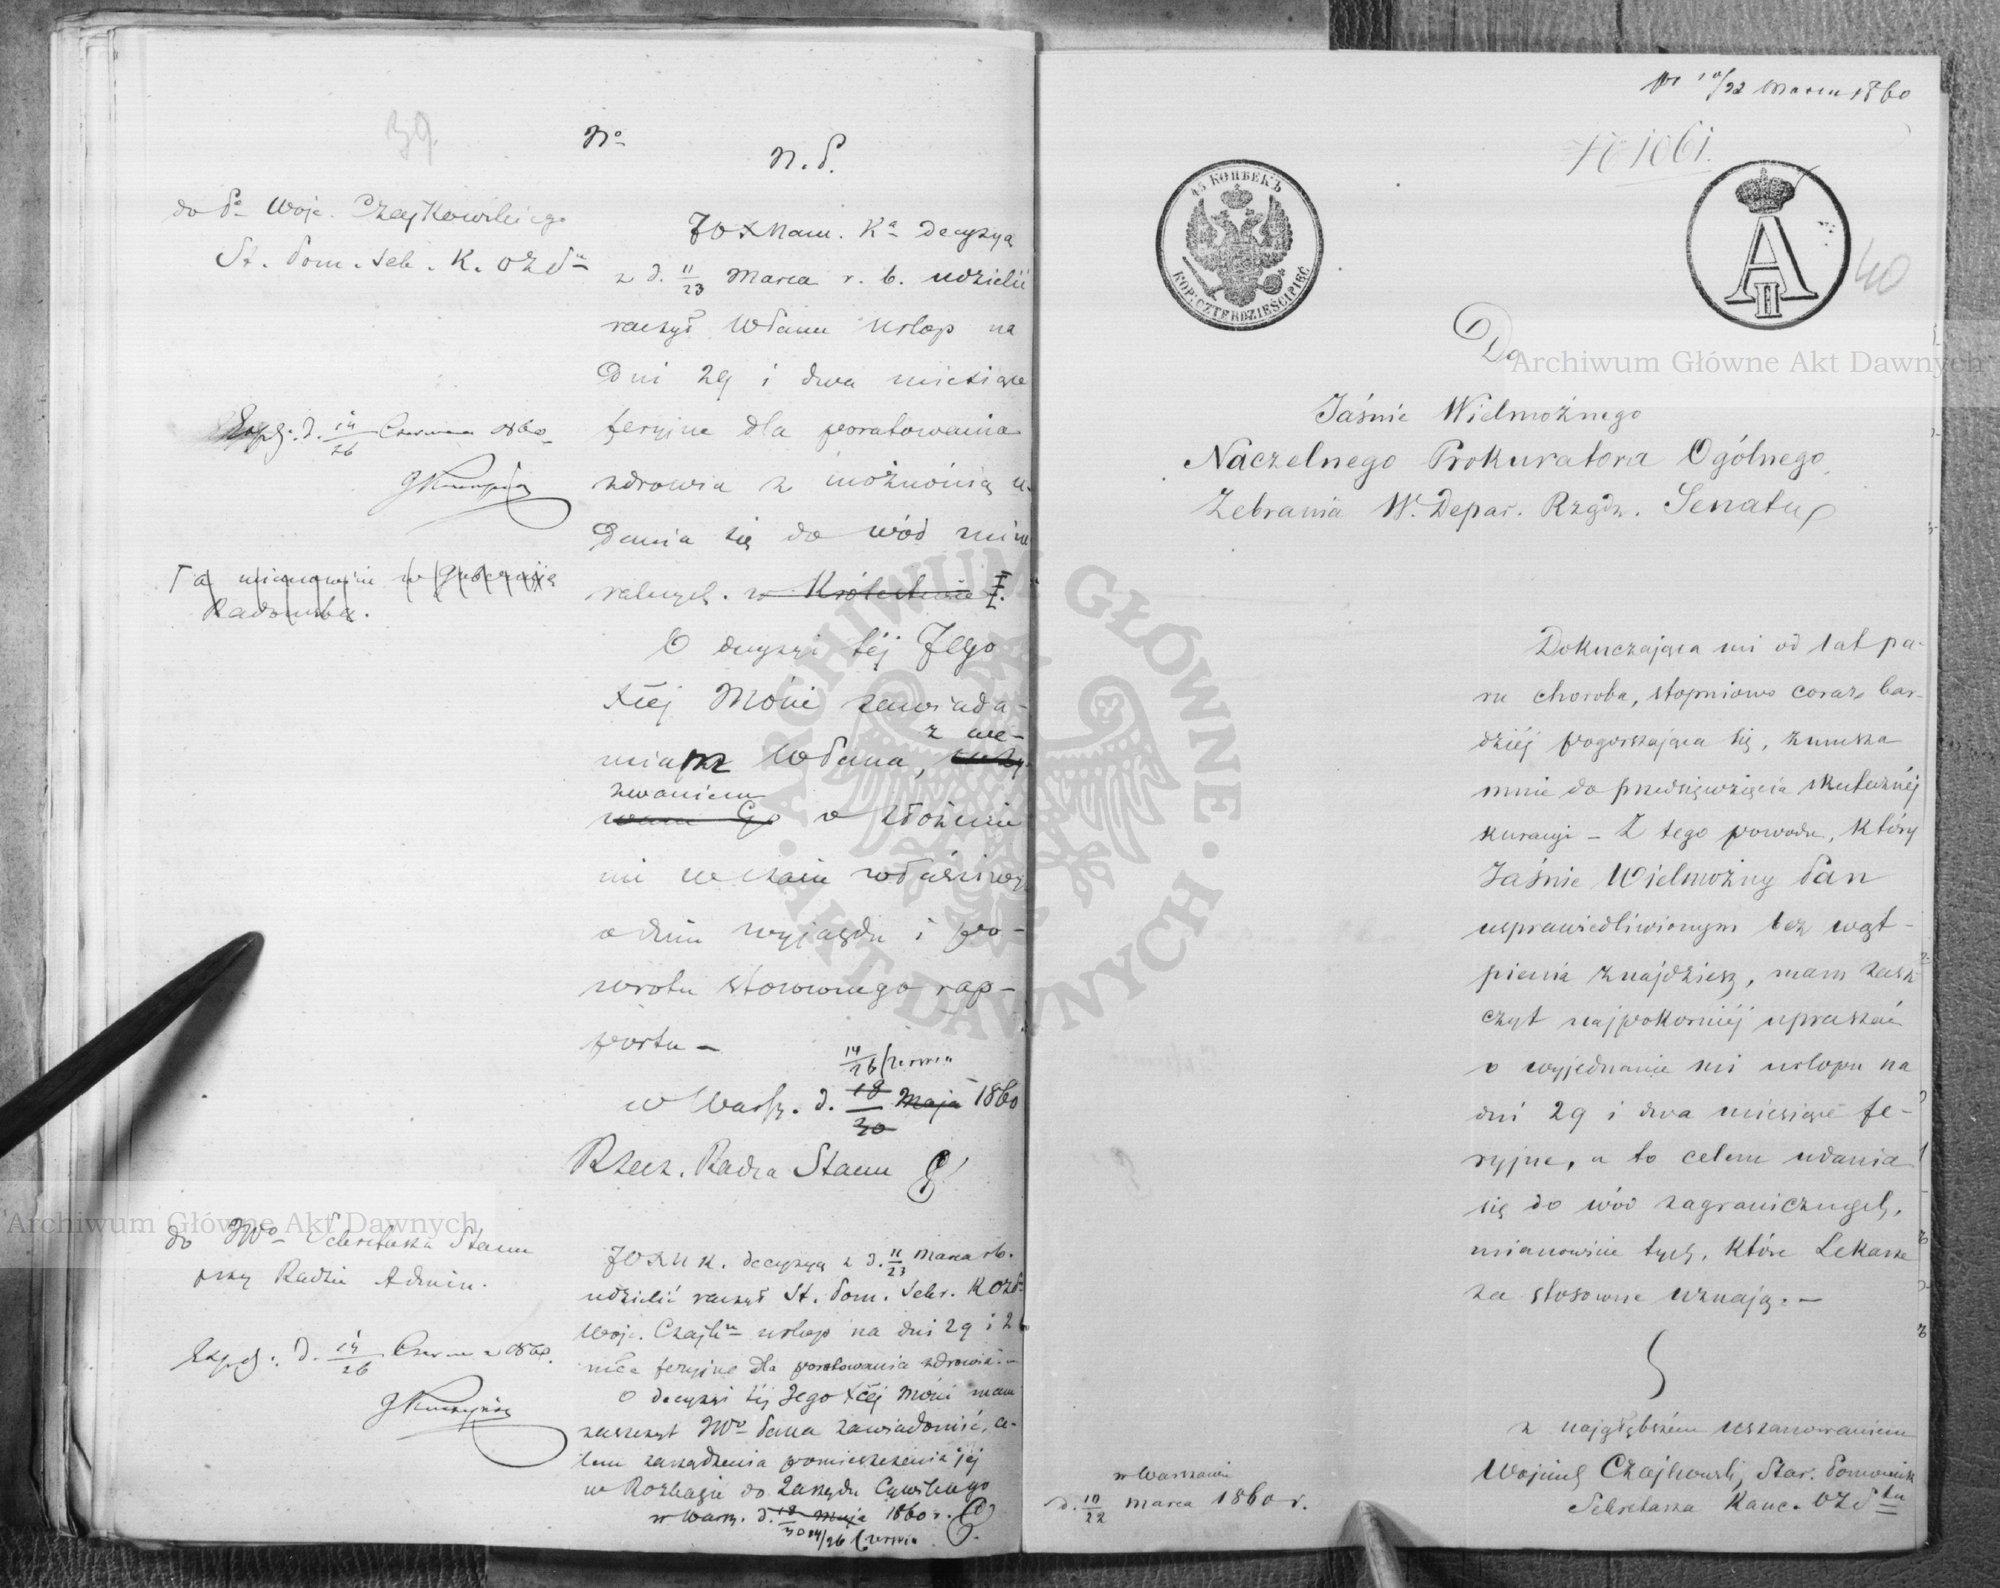 39.
No
N. P.
do Pa Wojc. Czajkowskiego
St. Pom. Sek. K. OZSu
JOXNam. Ka decyzyą
z d. 11/23 Marca r. b. udzielić
raczył WPanu urlop na
Dni 29 i dwa miesiące
feryjne dla poratowania
zdrowia z możnością u-
dania się do wód mine
ralnych. w Królestwie
Exped. d. 14/26 Czerwca 1860
JKuczyński
a mianowicie w Gubernii
Radomska.
O decyzyi téj Jego
Xcéj Mości zawiada-
z we-
miając WPana,
zwaniem
Go o złożenie
mi w czasie właściwym
o dniu wyjazdu i po-
wrotu stosownego rap-
portu –
14/26 Czerwca
w Warsz. d. 18/30 Maja 1860
Rzecz. Radca Stanu
do JWo Sekretarza Stanu
przy Radzie Admin.
Exped. d. 14/26 Czerwca 1860.
JKuczyński
JOXN K. decyzyą z d. 11/23 Marca rb.
udzielić raczył St. Pom. Sekr. K OZS
Wojc. Czajkmu urlop na dni 29 i 2
mce feryjne dla poratowania zdrowia. –
O decyzyi téj Jego Xcéj Mości mam
zaszczyt JWo Pana zawiadomić, ce-
lem zarządzenia pomieszczenia jéj
w Rozkazie do Zarządu Cywilnego
w Warsz. d. 18/30 Maja 1860 r.
14/26 Czerwca
10/22 Marca 1860
N 1061.
45 КОПѢЕКЪ
KOP: CZTERDZIEŚCI PIĘĆ
A II
40
Do
Jaśnie Wielmożnego
Naczelnego Prokuratora Ogólnego
Zebrania W. Depar. Rządz. Senatu
Dokuczająca mi od lat pa-
ru choroba, stopniowo coraz bar-
dziéj pogorszająca się, zmusza
mnie do przedsięwzięcia skutecznéj
kuracyi – Z tego powodu, który
Jaśnie Wielmożny Pan
usprawiedliwionym bez wąt-
pienia znajdziesz, mam zasz-
czyt najpokorniéj upraszać
o wyjednanie mi urlopu na
dni 29 i dwa miesiące fe-
ryjne, a to celem udania
się do wód zagranicznych,
mianowicie tych, które Lekarze
za stosowne uznają. –
z najgłębszém uszanowaniem
Wojciech Czajkowski, Star. Pomocnik
Sekretarza Kanc. OZStu
w Warszawie
d. 10/22 Marca 1860 r.
Archiwum Główne Akt Dawnych
Archiwum Główne Akt Dawnych
ARCHIWUM GŁÓWNE · AKT DAWNYCH ·